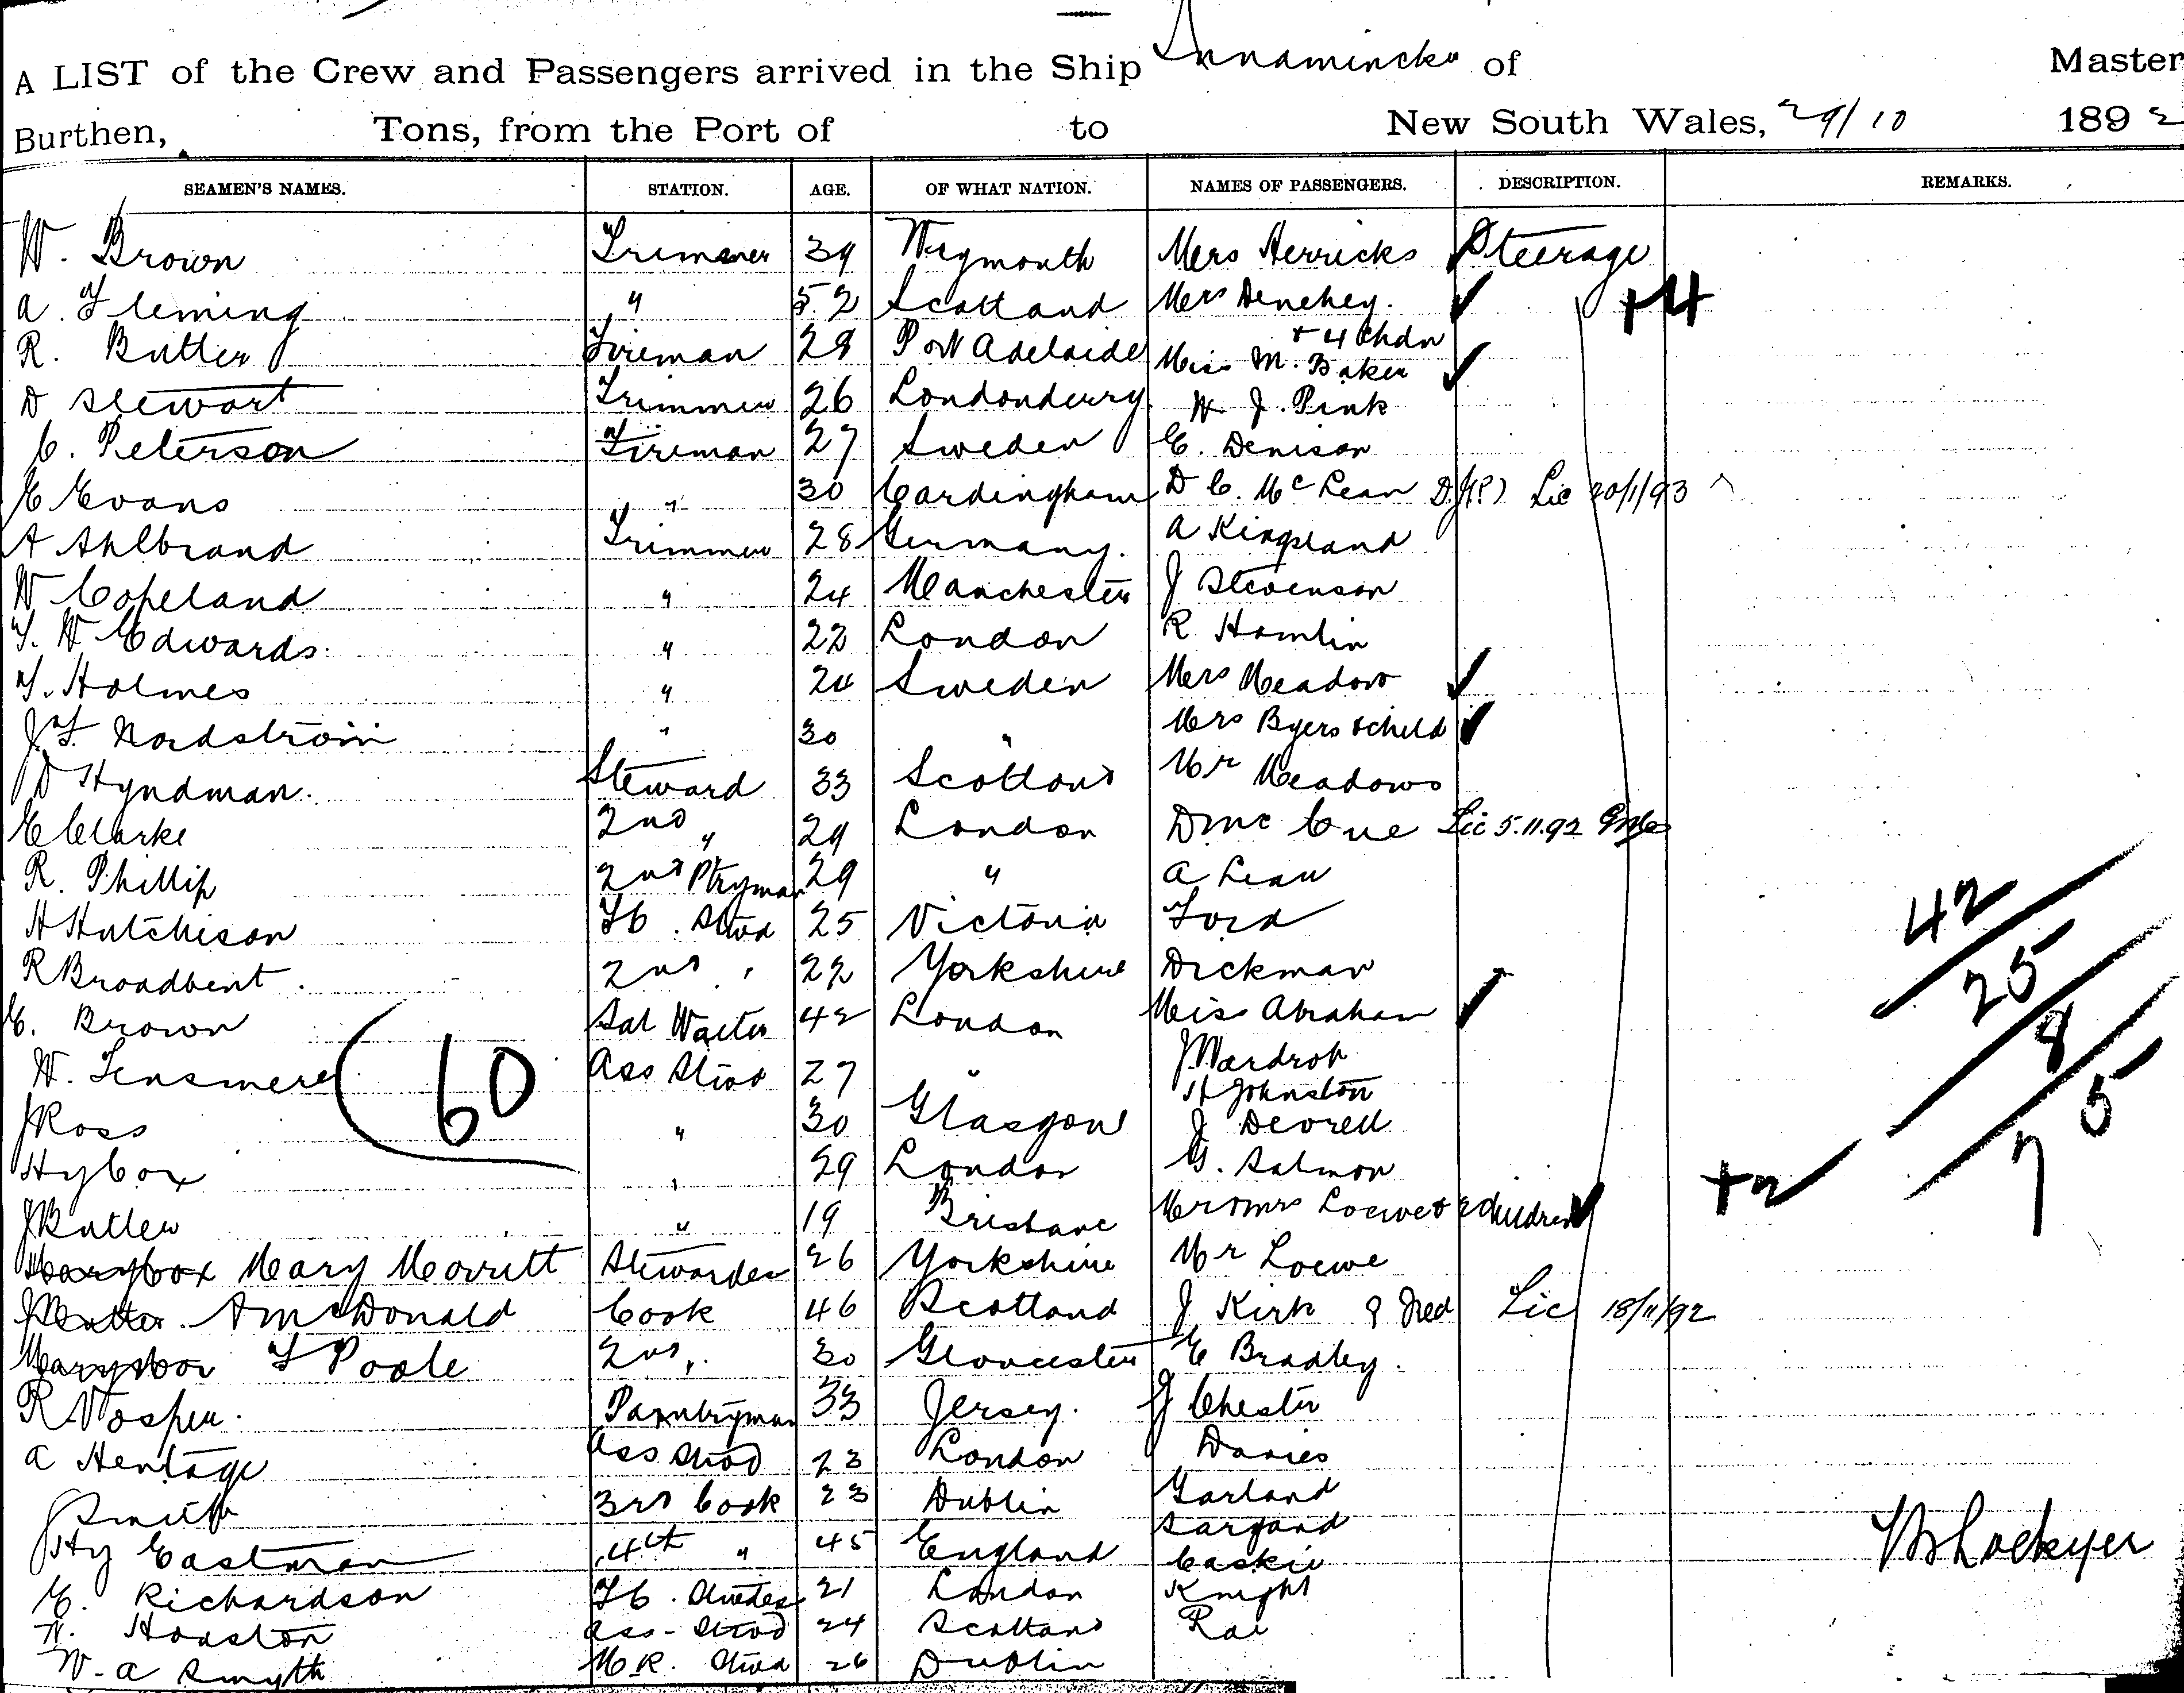 A LIST of the Crew and Passengers arrived in the Ship Innamincka of Master
Burthen, Tons, from the Port of to New South Wales, 29/10 1892
SEAMEN'S NAMES. STATION. AGE. OF WHAT NATION. NAMES OF PASSENGERS. DESCRIPTION. REMARKS.
W. Brown Trimmer 39 Weymouth Mrs Herricks Steerage
A. Fleming " 52 Scotland Mrs Denehey. +4
R. Butler Fireman 28 Port Adelaide + 4 Chdn Miss M. Baker
D Stewart Trimmer 26 Londonderry W J. Pink
C. Peterson Fireman 27 Sweden E. Denison
E Evans " 30 Cardingham D C. McLean Lic 20/1/93
A Ahlbrand Trimmer 28 Germany. A Kingsland
W Copeland " 24 Manchester J Stevenson
T. W Edwards " 22 London R Hamlin
T. Holmes " 24 Sweden Mrs Meadow
J. F. Nordström " 30 " Mrs Byers & child
D Hyndman. Steward 33 Scotland Mr Meadows
E Clarke 2nd " 29 London D McCue Lic 5.11.92
R. Phillip 2nd Ptryman 29 " A Lean
H Hutchison F C. Stwd 25 Victoria Ford
R Broadbent. 2nd " 22 Yorkshire Dickman
E. Brown Sal Waiter 42 London Miss Abraham
W. Tensmere Ass Stwd 27 " J Wardrop
H Johnston
J Ross " 30 Glasgow J Deorell
Hy Cox " 29 London G. Salmon
J Butler " 19 Brisbane Mr & Mrs Loewe & 2 children
Mary Merritt Stewardess 26 Yorkshire Mr Loewe
A McDonald Cook 46 Scotland J Kirk Lic 18/11/92
F Poole 2nd " 30 Gloucester E Bradley.
R Vosper. Pantryman 33 Jersey. J Chester
A Hentage Ass Stwd 23 London Davies
J Smith 3rd Cook 23 Dublin Garland
Sargand
Hy Eastman 4th " 45 England Caskie
E. Richardson F C. Stwdess 21 London Knight
W. Houston Ass. Stwd 24 Scotland Rae
W. A Smyth M.R. Stwd 26 Dublin
60
42
25
8
75
+2